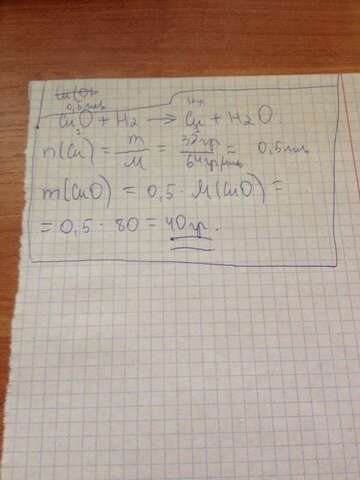 0,5 моль
CuO + H2 → Cu + H2O.
n(Cu) = m/M = 32гр/64гр/моль = 0,5 моль
m(CuO) = 0,5 · M(CuO) =
= 0,5 · 80 = 40гр.